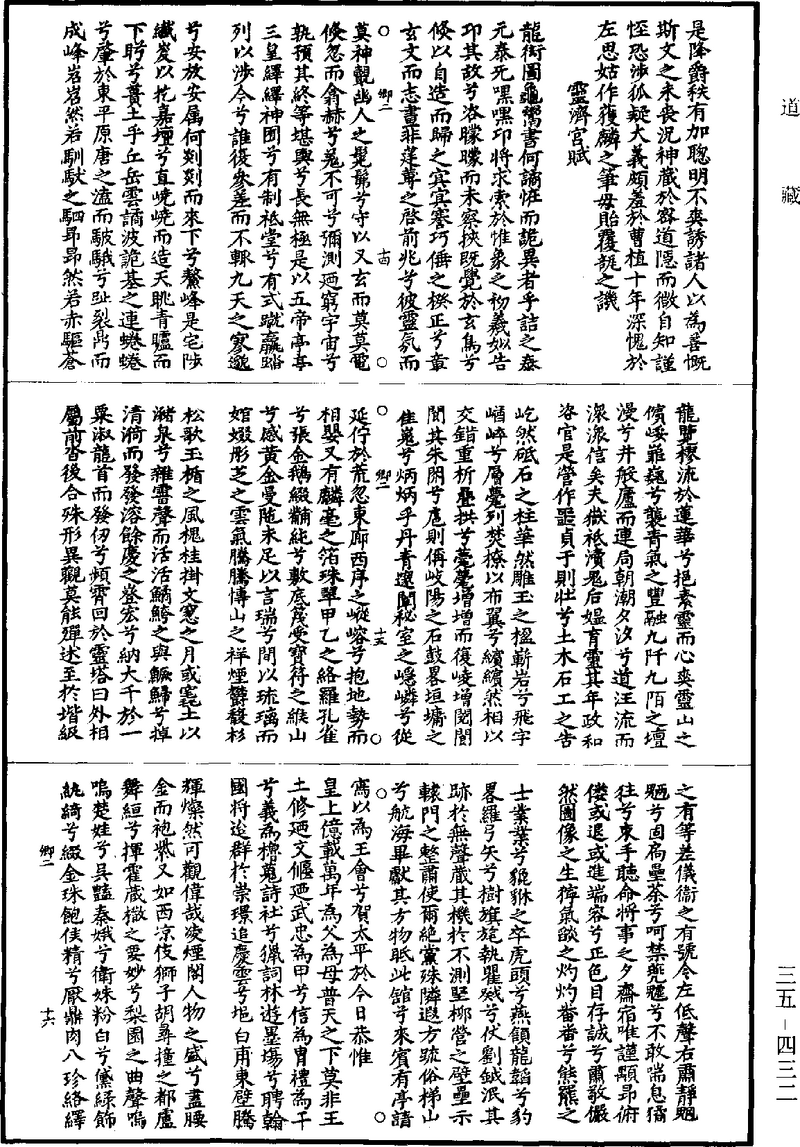 道藏
是降爵秩有加聰明不爽誘諸人以為善慨
斯文之未喪況神藏於密道隱而微自知謹
恇恐涉狐疑大義頗羞於曹植十年深愧於
左思姑作獲麟之筆毋貽覆瓿之譏
靈濟宮賦
龍銜圖龜鸑書何謫恠而詭異者乎詰之泰
元泰死嘿嘿卬將求索於惟象之初羲姒告
卬其故兮洛朦朦而未察挾既覺於玄雋兮
倏以自造而歸之寅賓謇巧倕之揆正兮章
玄文而志晝菲筳篿之啓前兆兮彼靈氛而
莫神覿幽人之髣髴兮守以又玄而莫莫電
倏忽而翕赫兮冕不可兮彌測廼窮宇宙兮
執預其終等堪輿兮長無極是以五帝亭亭
三皇繹繹神囿兮有制袛堂兮有式蹴蠃踏
列以涉今兮誰復參差而不輙九天之寥邈
兮安放安属何剡剡而來下兮鰲峰是宅陟
纖峻以扢嘉壇兮直嶢嶢而造天眺青驢而
下眄兮蕢土乎丘岳雲譎波詭基之連蜷蜷
兮肇於東平原唐之溘而皷皷兮趾裂鼎而
成峰岩岩然若馴馱之駟昻昻然若赤驅蒼
龍蹔樛流於蓮華兮挹素靈而心爽靈山之
儐崣嶊巍兮襲青氣之豐融九阡九陌之壇
漫兮幷般廬而連局朝潮夕汐兮道汪流而
潨潨信矣夫嶽袛瀆鬼后媪育靈其年政和
咨官是營作噩貞于則壯兮土木石工之告
屹然砥石之柱華然雕玉之楹嶄岩兮飛宇
崷崪兮層甍列焚橑以布翼兮繽繽然相以
交錯重析疊拱兮薨薨增增而復崚增閌閬
閒其朱閎兮扈則偁岐陽之石鼓畧垣墉之
隹嵬兮炳炳乎丹青邃闥秘室之嶾嶙兮從
延佇於荒忽東廊西序之嵷嵱兮抱地勢而
相嬰又有麟毫之箔珠翠甲乙之絡羅孔雀
兮張金鵝綴黼純兮敷底蔑受寶符之緱山
兮感黃金曼陁未足以言瑞兮間以琉璃而
婠娺形芝之雲氣騰騰博山之祥煙欝馥杉
松歌玉楯之風槐桂掛文窻之月或寋土以
瀦泉兮雜霤聲而活活鱊鮬之與鱖鯞兮掉
清漪而發發溶餘慶之豋宏兮納大千於一
粟淑龍首而發仞兮頻霄回於靈塔曰外相
屬前沓後合殊形異觀莫能殫述至於堦級
之有等差儀衞之有號令左低聲右肅靜魍
魎兮固扃壘荼兮呵禁甝魖兮不敢喘息獝
往兮東手聽命將事之夕齋宿唯謹顒昻俯
僂或退或進端容兮正色目存誠兮肅敬儼
然圖像之生獰氣燄之灼灼畨畨兮熊羆之
士業業兮貔貅之卒虎頭兮燕頷龍韜兮豹
畧羅弓矢兮樹旗旄執瞿戣兮伏劉鉞泯其
跡於無聲藏其機於不測堅栁營之壁壘示
轅門之整肅使爾絕黨殊隣遐方䟽俗梯山
兮航海畢獻其方物眂此舘兮來賓有亭請
寓以為王會兮賀太平於今日恭惟
皇上億載萬年為父為母普天之下莫非王
土修廼文偃廼武忠為甲兮信為胄禮為干
兮義為櫓蒐詩社兮獵詞林遊墨場兮騁翰
國將迨群於崇環追慶雲兮垝白甫東壁騰
輝燦然可觀偉哉凌煙閣人物之盛兮盡腰
金而袍紫又如西凉伎獅子胡彝撞之都盧
舞絙兮揮霍蔵檓之要妙兮梨園之曲聲嗚
嗚楚娃兮吴豔秦娥兮衛姝粉白兮黛綠飾
紈綺兮綴金珠飽侯精兮厭鼎肉八珍絡繹
卿二
十四
卿二
十五
卿二
十六
三五－四三二